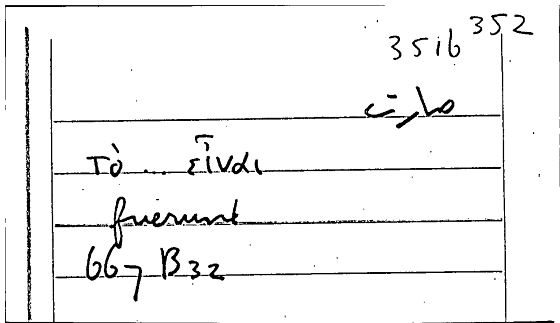 351b 352
صارت
τὸ... εἶναι
fuerunt
667 B32